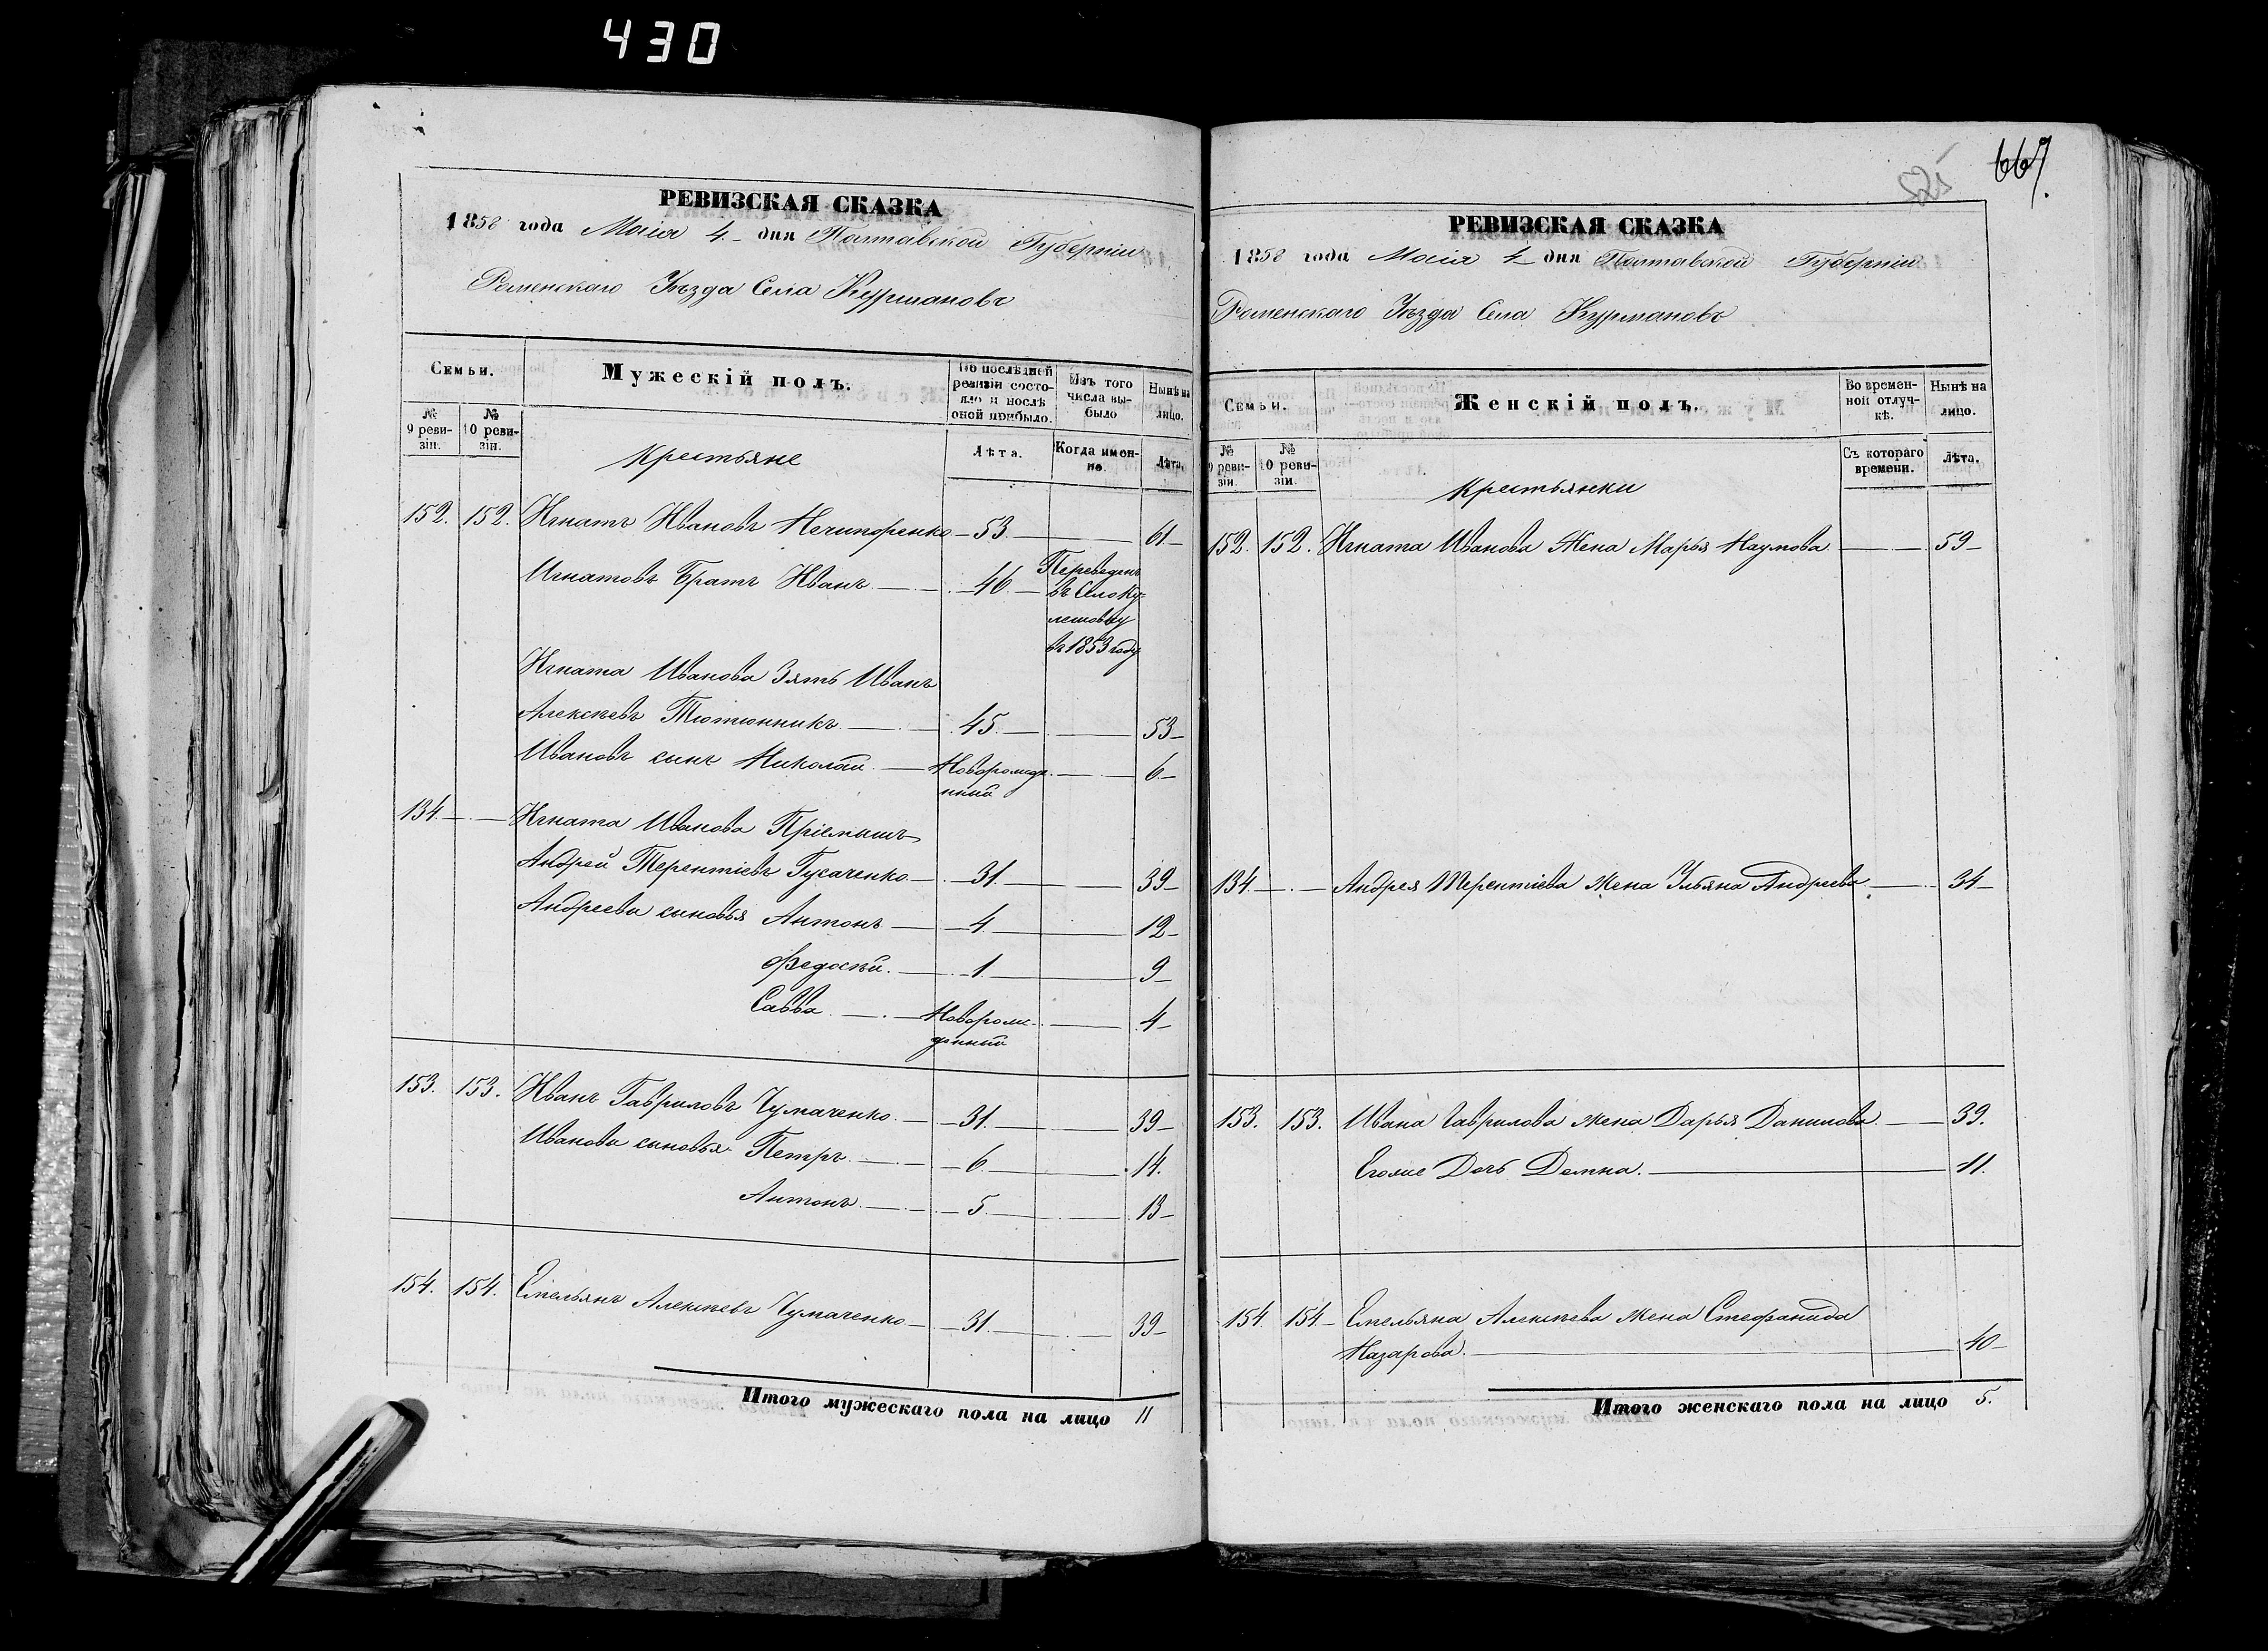 430
667.
РЕВИЗСКАЯ СКАЗКА
1858 года Маія 4 дня Полтавской Губерніи
Роменскаго Уѣзда Села Курмановъ
Семьи.
№ 9 ревизіи.
№ 10 ревизіи.
Мужескій полъ.
По послѣдней ревизіи состояло и послѣ оной прибыло.
Изъ того числа выбыло
Нынѣ на лицо.
Лѣта.
Когда именно.
Лѣта.
Крестьяне
152. 152. Игнатъ Ивановъ Нечипоренко 53. 61
Игнатовъ Братъ Иванъ 46 Переведенъ
въ Село Ку-
лешовку
въ 1853 году
Игната Иванова Зять Иванъ
Алексѣевъ Тютюнникъ 45. 53
Ивановъ сынъ Николай Новорожде- 6
нный
134. Игната Иванова Пріемышъ
Андрей Терентіевъ Гусаченко 31. 39
Андреевы сыновья Антонъ 4. 12
Федосѣй 1. 9
Савва Новорож- 4
денный
153. 153. Иванъ Гавриловъ Чумаченко 31. 39
Ивановы сыновья Петръ 6. 14.
Антонъ 5. 13
154. 154. Емельянъ Алексѣевъ Чумаченко 31. 39
Итого мужескаго пола на лицо 11
РЕВИЗСКАЯ СКАЗКА
1858 года Маія 4 дня Полтавской Губерніи
Роменскаго Уѣзда Села Курмановъ
Семьи.
№ 9 ревизіи.
№ 10 ревизіи.
Женскій полъ.
Во временной отлучкѣ.
Нынѣ на лицо.
Съ котораго времени.
Лѣта.
Крестьянки
152. 152. Игната Иванова Жена Марья Наумова 59
134. Андрея Терентіева Жена Ульяна Андреева 34
153. 153. Ивана Гаврилова жена Дарья Данилова 39.
Егоже Дочь Домна. 11.
154. 154 Емельяна Алексѣева жена Стефанида
Назарова. 40
Итого женскаго пола на лицо 5.